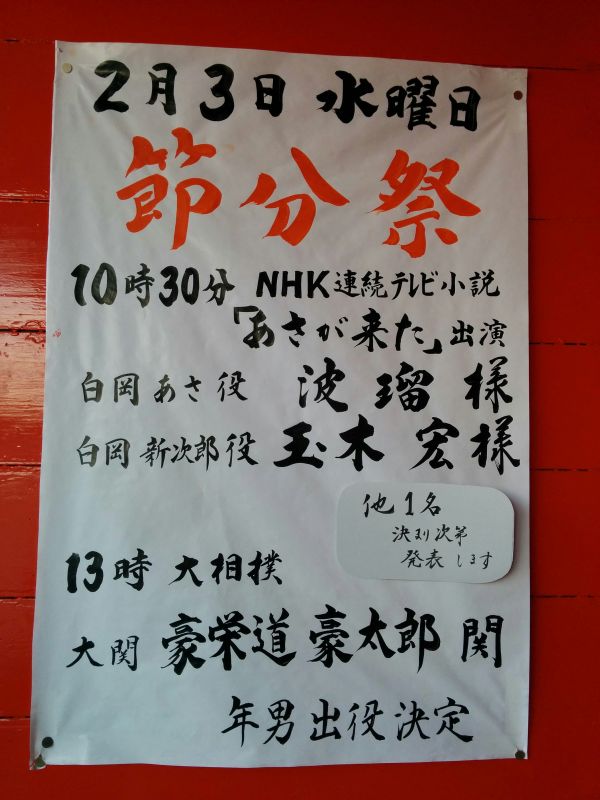 2月3日 水曜日
節分祭
10時30分 NHK連続テレビ小説
「あさが来た」出演
白岡あさ役 波瑠様
白岡新次郎役 玉木宏様
他1名
決まり次第
発表します
13時 大相撲
大関 豪栄道豪太郎関
年男出役決定